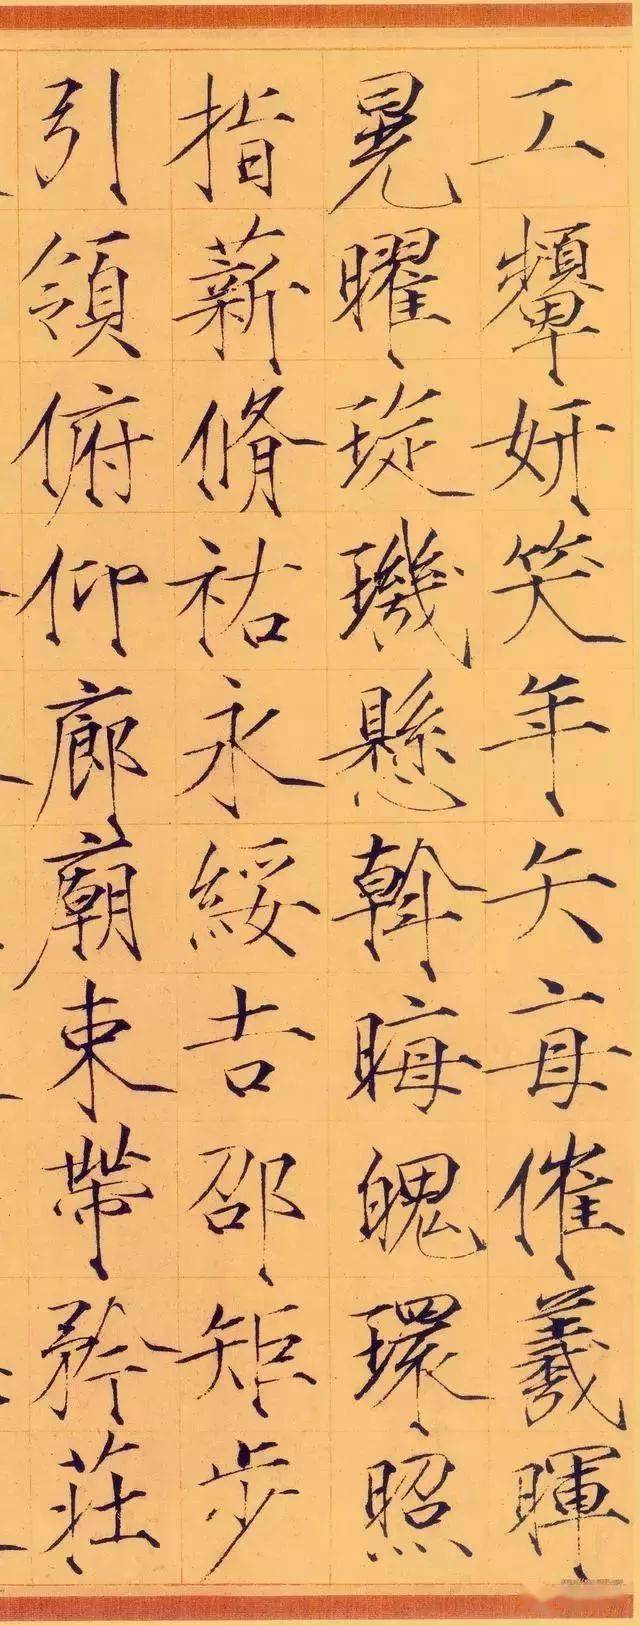 工顰妍笑年矢每催羲暉
晃曜琁璣懸斡晦魄環照
指薪脩祐永綏吉邵矩步
引領俯仰廊廟束帶矜莊